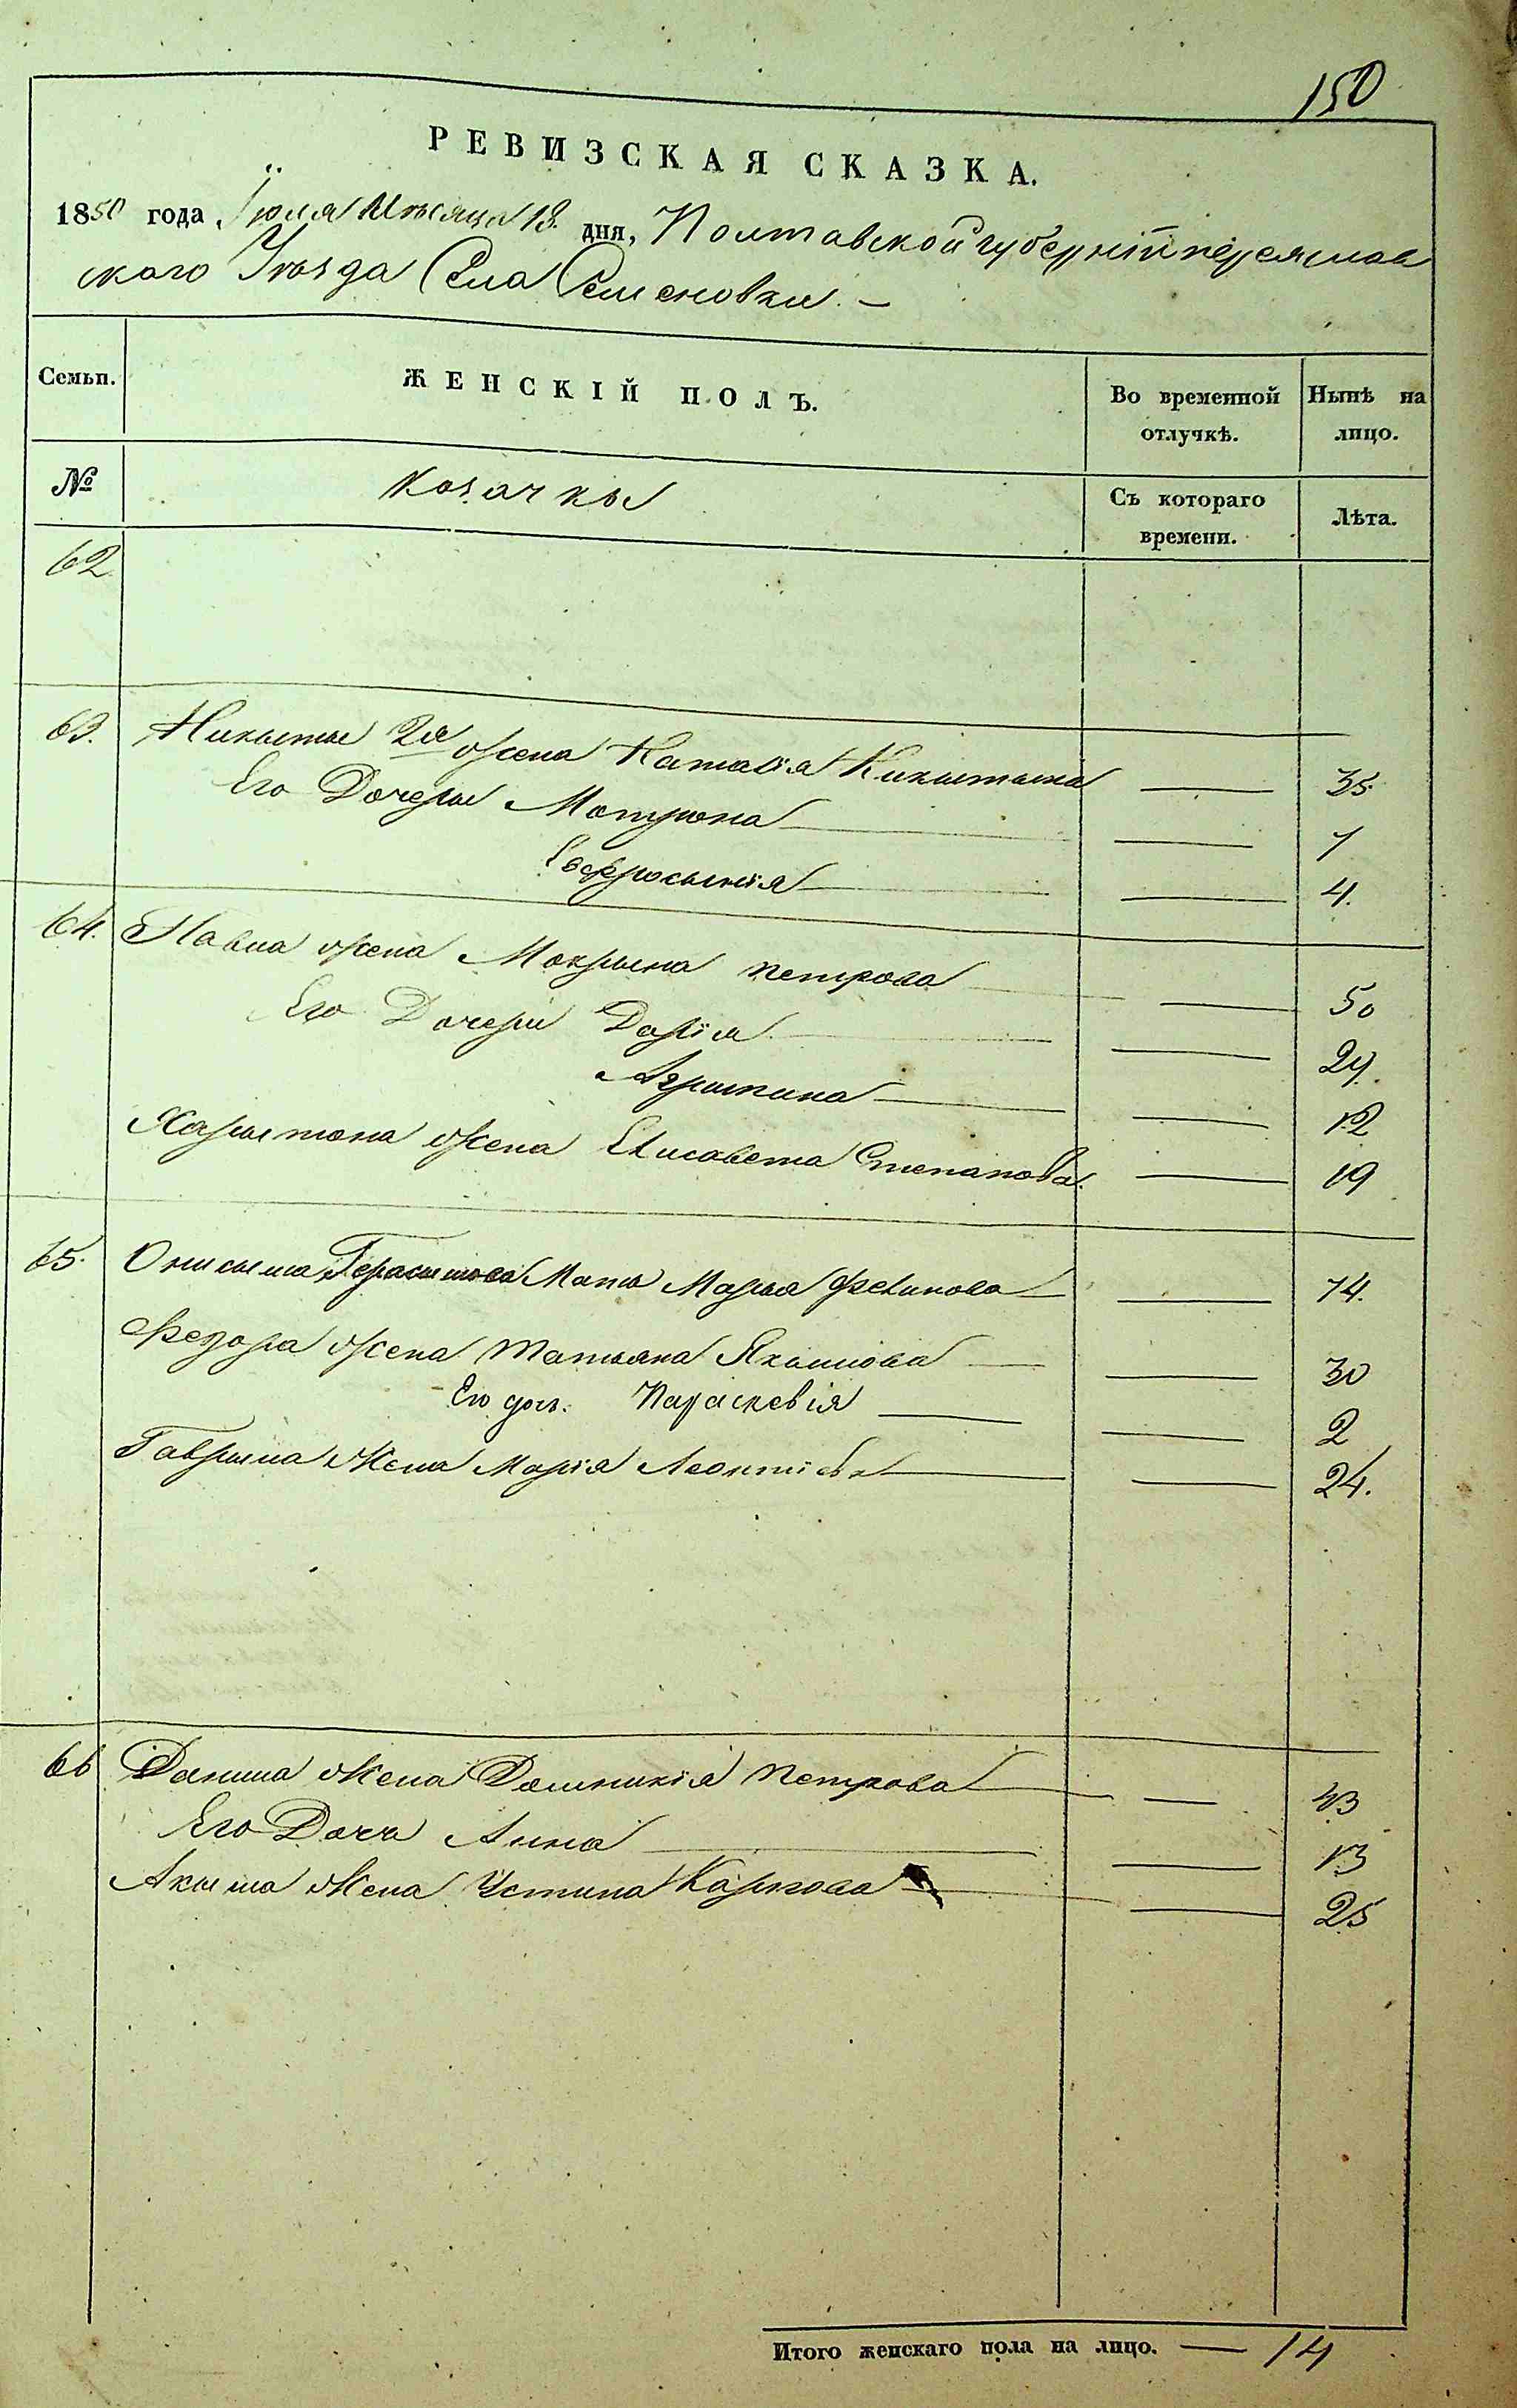 150
РЕВИЗСКАЯ СКАЗКА.
1850 года, Іюля Мѣсяца 18. дня, Полтавской губерніи переяслав
ского Уѣзда Села Семеновки. —
Семьи.
ЖЕНСКІЙ ПОЛЪ.
Во временной отлучкѣ.
Нынѣ на лицо.
№
козачкы
Съ котораго времени.
Лѣта.
62
63. Никыты 2я жена Наталія Никытына — 35.
Его Дочеры Мотрона — 7
Евфросынія — 4.
64. Павла жена Мокрына петрова — 50
Его Дочери Дарія — 24.
Агрыпина — 12
Харытона жена Елисавета Степанова. — 19
65. Онисыма Герасимова Мать Марья — 74.
Федора жена Татьяна Якымова — 30
Его доч. Параскевія — 2
Гаврыла Жена Марія Леонтіева — 24.
66 Данила Жена Домникія петрова — 43
Его Дочь Анна — 13
Акыма Жена Устина Карпова — 25
Итого женскаго пола на лицо. — 14